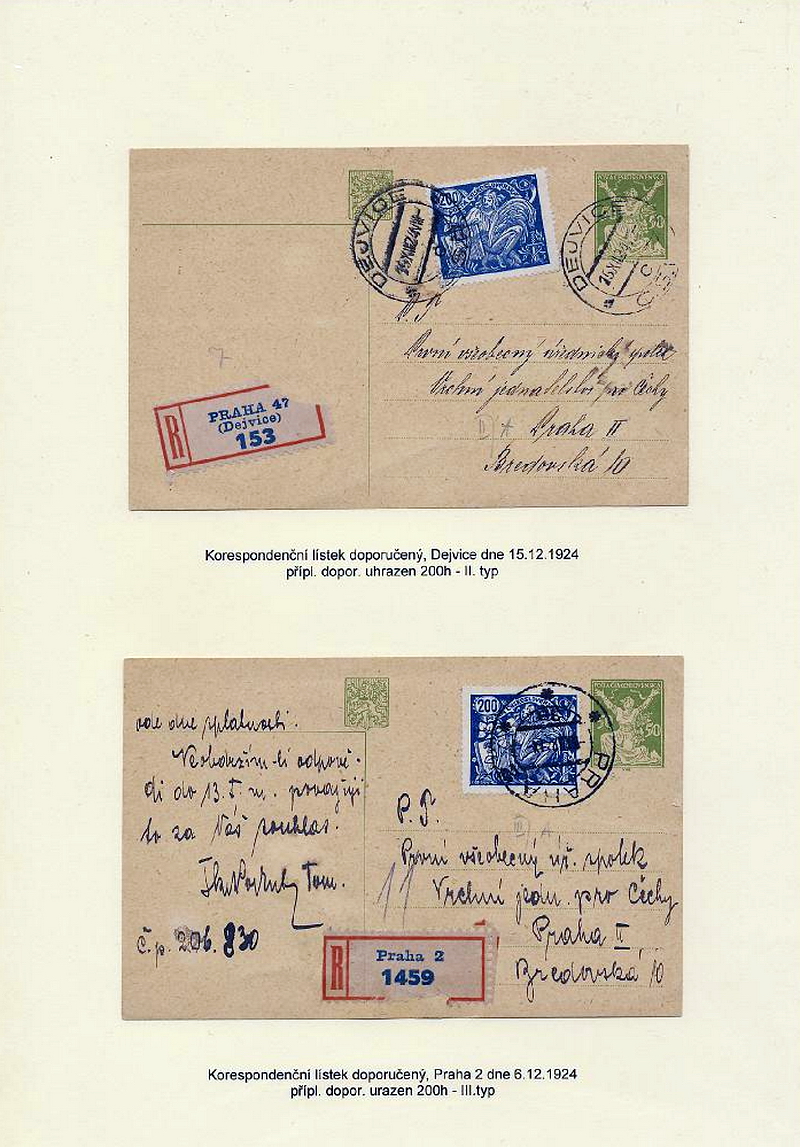 200
DEJVICE
15.XII.24
50
DEJVICE
15.XII.24
P.T.
První všeobecný úřednický spolek
Vrchní jednatelství pro Čechy
II A
Praha II
Bredovská 10
7
R
PRAHA 47
(Dejvice)
153
Korespondenční lístek doporučený, Dejvice dne 15.12.1924
přípl. dopor. uhrazen 200h - II. typ
POŠTA ČESKOSLOVENSKÁ
50
200
PRAHA
ode dne splatnosti.
Neobdržím-li odpově-
di do 13. t. m. považuji
to za Váš souhlas.
Č.p. 206.830
P.T.
III A
První všeobecný úř. spolek
11
Vrchní jedn. pro Čechy
Praha II
Bredovská 10
R
Praha 2
1459
Korespondenční lístek doporučený, Praha 2 dne 6.12.1924
přípl. dopor. urazen 200h - III.typ